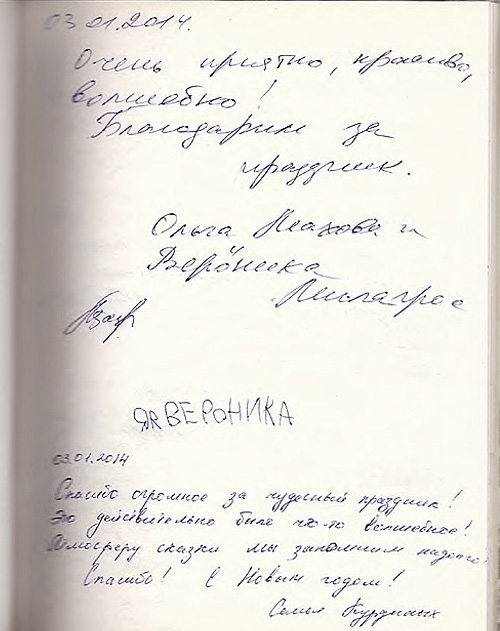 03.01.2014.
Очень приятно, красиво,
волшебно!
Благодарим за
праздник.
Ольга и
Вероника
ЯЯ ВЕРОНИКА
03.01.2014
Спасибо огромное за чудесный праздник!
Это действительно было что-то волшебное!
Атмосферу сказки мы запомним надолго
Спасибо! С Новым годом!
Семья